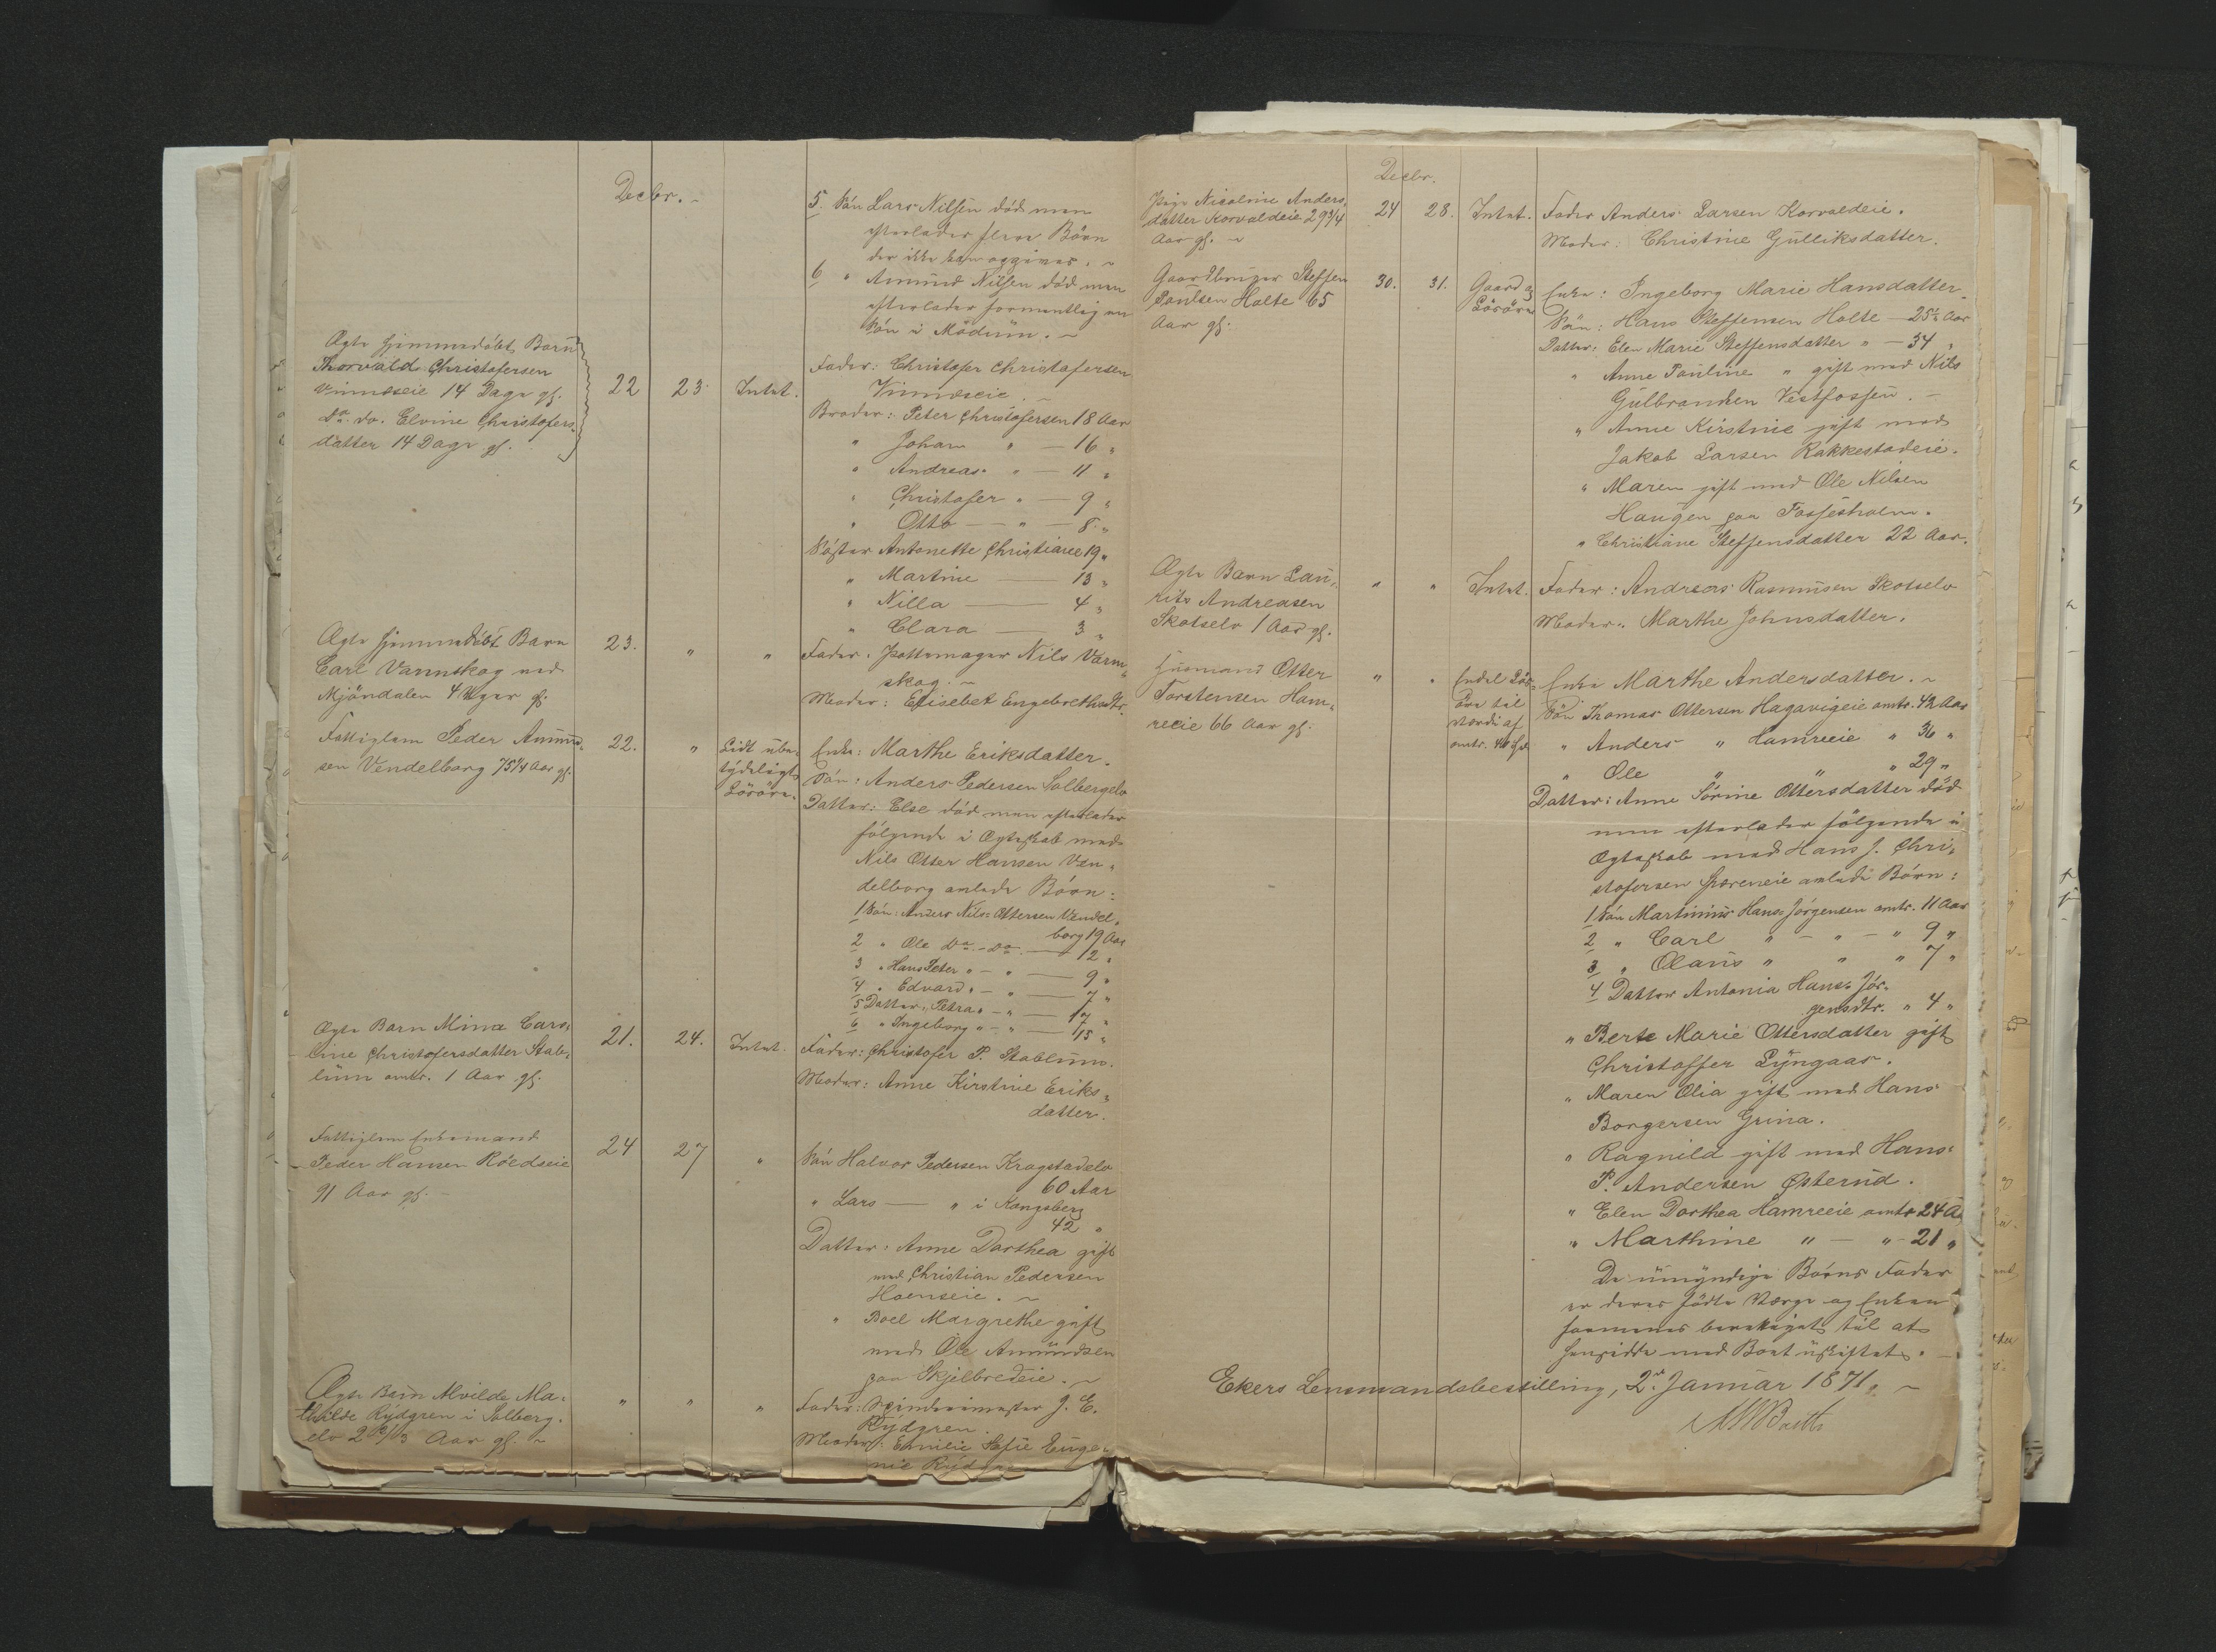 Decbr. -
5. Søn Lars Nilsen død men
efterlader flere Børn
der ikke kan opgives. -
6 " Amund Nilsen død men
efterlader formentlig en
Søn i Mødum. -
Ægte hjemmedøbt Barn
Thorvald Christofersen
Vinnæseie 14 Dage gl.
Do. do. Elvine Christofers-
datter 14 Dage gl.
22 23. Intet.
Fader: Christofer Christofersen
Vinnæseie. -
Broder: Peter Christofersen 18 Aar
" Johan " - 16 "
" Andreas " - 11 "
" Christofer " - 9 "
" Otto - " - 8 "
Søster Antonette Christiane 19 "
" Martine - 13 "
" Nilla - 4 "
" Clara - 3 "
Ægte hjemmedøbt Barn
Carl Vannskog ved
Mjøndalen 4 Uger gl.
23. " "
Fader. Pottemager Nils Varn-
skog. -
Moder: Elisebet Engebrethsdtr.
Fattiglem Peder Amund-
sen Vendelborg 75 1/4 Aar gl.
22. " Lidt ube-
tydeligt
Løsøre.
Enke: Marthe Eriksdatter.
Søn: Anders Pedersen Solbergelv
Datter: Else død men efterlader
følgende i Ægteskab med
Nils Otter Hansen Ven-
delborg avlede Børn:
1 Søn: Anders Nils: Ottersen Vendel-
borg 19 Aar
2 " Ole Do. - Do. - 12 "
3 " Hans Peter " - " - 9 "
4 " Edvard " - " - 7 "
5 Datter: Petra " - " - 17 "
6 " Ingeborg " - " - 15 "
Ægte Barn Mina Caro-
line Christofersdatter Stab-
lum omtr. 1 Aar gl.
21. 24. Intet.
Fader: Christofer P. Stablum.
Moder: Anne Kirstine Eriks-
datter.
Fattiglem Enkemand
Peder Hansen Røedseie
91 Aar gl. -
24 27 "
Søn Halvor Pedersen Krogstadelv
60 Aar
" Lars - " i Kongsberg
42 "
Datter: Anne Dorthea gift
med Christian Pedersen
Hoenseie. -
" Boel Margrethe gift
med Ole Amundsen
paa Skjelbredeie. -
Ægte Barn Alvilde Ma-
thilde Rydgren i Solberg-
elv 2 Aar gl. -
" " "
Fader: J. E.
Rydgren.
Moder: Emilie Sofie Euge-
nie
Decbr.
Pige Nicoline Anders-
datter Korvaldeie 29 3/4
Aar gl. -
24 28. Intet.
Fader Anders Larsen Korvaldeie.
Moder: Christine Gulliksdatter.
Gaardbruger Steffen
Poulsen Holte 65
Aar gl.
30. 31. Gaard og
Løsøre
Enke: Ingeborg Marie Hansdatter
Søn: Hans Steffensen Holte - 25 1/2 Aar
Datter: Elen Marie Steffensdatter " - 34 "
" Anne Pauline " gift med Nils
Gulbrandsen Vestfossen. -
" Anne Kirstine gift med
Jakob Larsen Rakkestadeie.
" Maren gift med Ole Nilsen
Haugen paa Fossesholm.
" Christiane Steffensdatter 22 Aar.
Ægte Barn Lau-
rits Andreasen
Skotselv 1 Aar gl.
" " Intet.
Fader: Andreas Rasmusen Skotselv
Moder: Marthe Johnsdatter.
Husmand Otter
Torstensen Ham-
reeie 66 Aar gl.
" " Endel Løs-
øre til
Værdi af
omtr. 40 Spd.
Enke Marthe Andersdatter. -
Søn Thomas Ottersen Hagavigeie omtr. 42 Aar
" Anders " Hamreeie " 36 "
" Ole " " " 29 "
Datter: Anne Sørine Ottersdatter død
men efterlader følgende i
Ægteskab med Hans J. Chri-
stofersen avlede Børn:
1 Søn Martinius Hans Jørgensen omtr. 11 Aar
2 " Carl " - " - " 9 "
3 " Olaus " " " 7 "
4 Datter Antonia Hans Jør-
gensdtr. " 4 "
" Berte Marie Ottersdatter gift
Christoffer Lyngaas.
" Maren Olia gift med Hans
Borgersen Grina.
" Ragnild gift med Hans
P. Andersen Østerud.
" Elen Dorthea Hamreeie omtr 24 A
" Marthine " - " - 21 "
De umyndige Børns Fader
er deres fødte Værge og Enken
formenes berettiget til at
hensidde med Boet uskiftet. -
Ekers Lensmandsbestilling, 2. Januar 1871. -